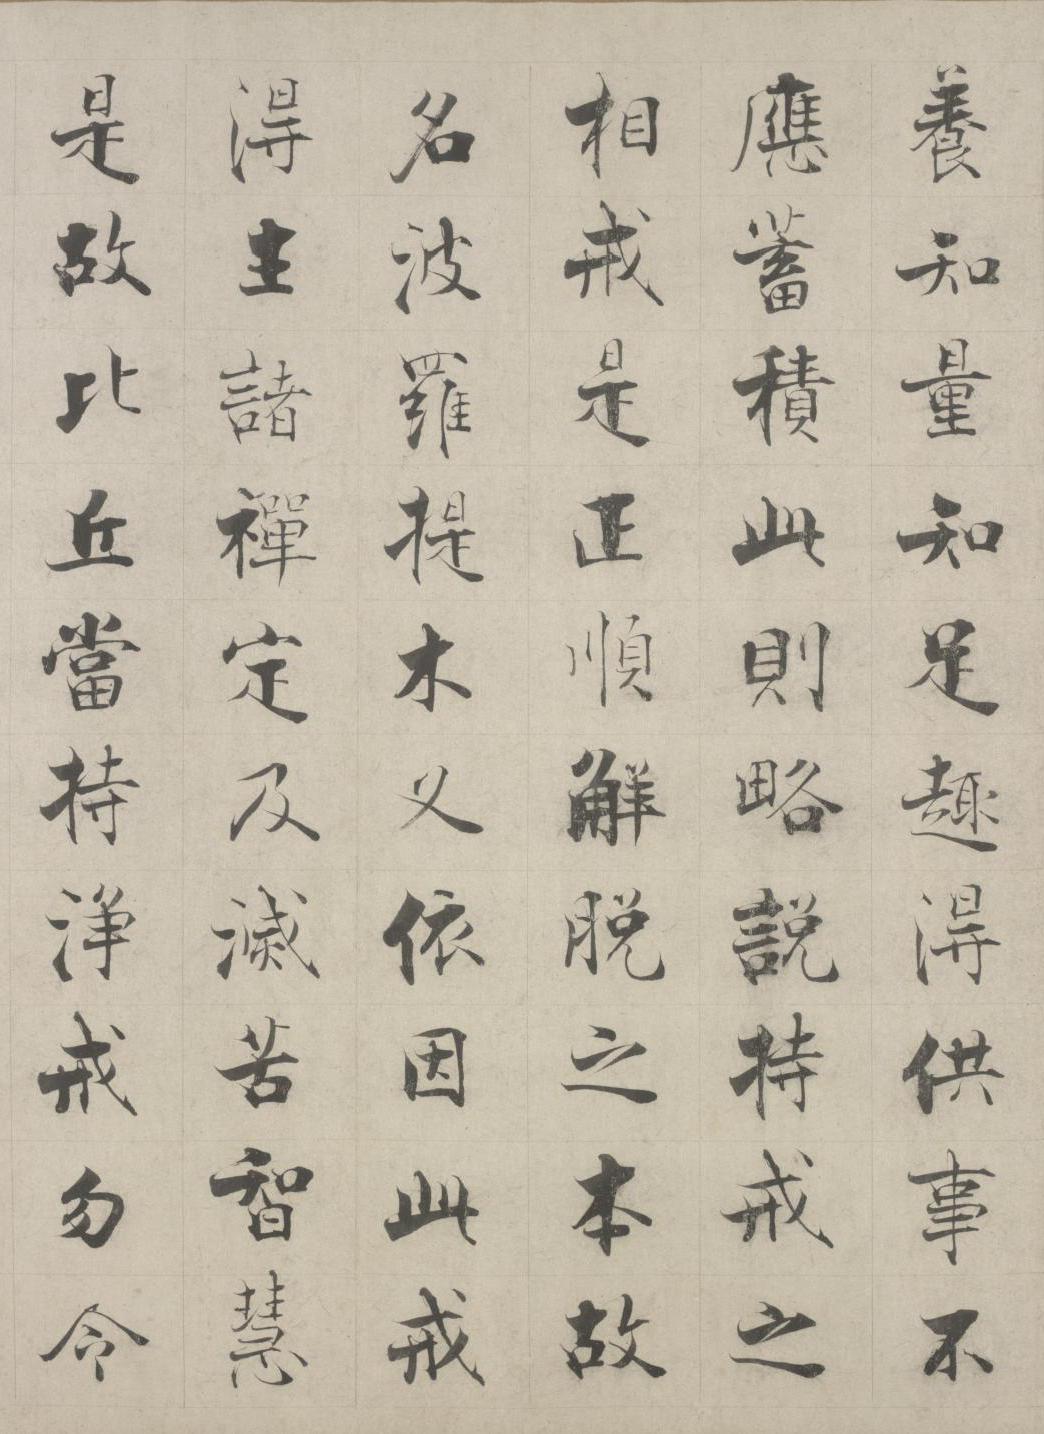 養知量知足趣得供事不
應蓄積此則略說持戒之
相戒是正順解脫之本故
名波羅提木叉依因此戒
得生諸禪定及滅苦智慧
是故比丘當持淨戒勿令